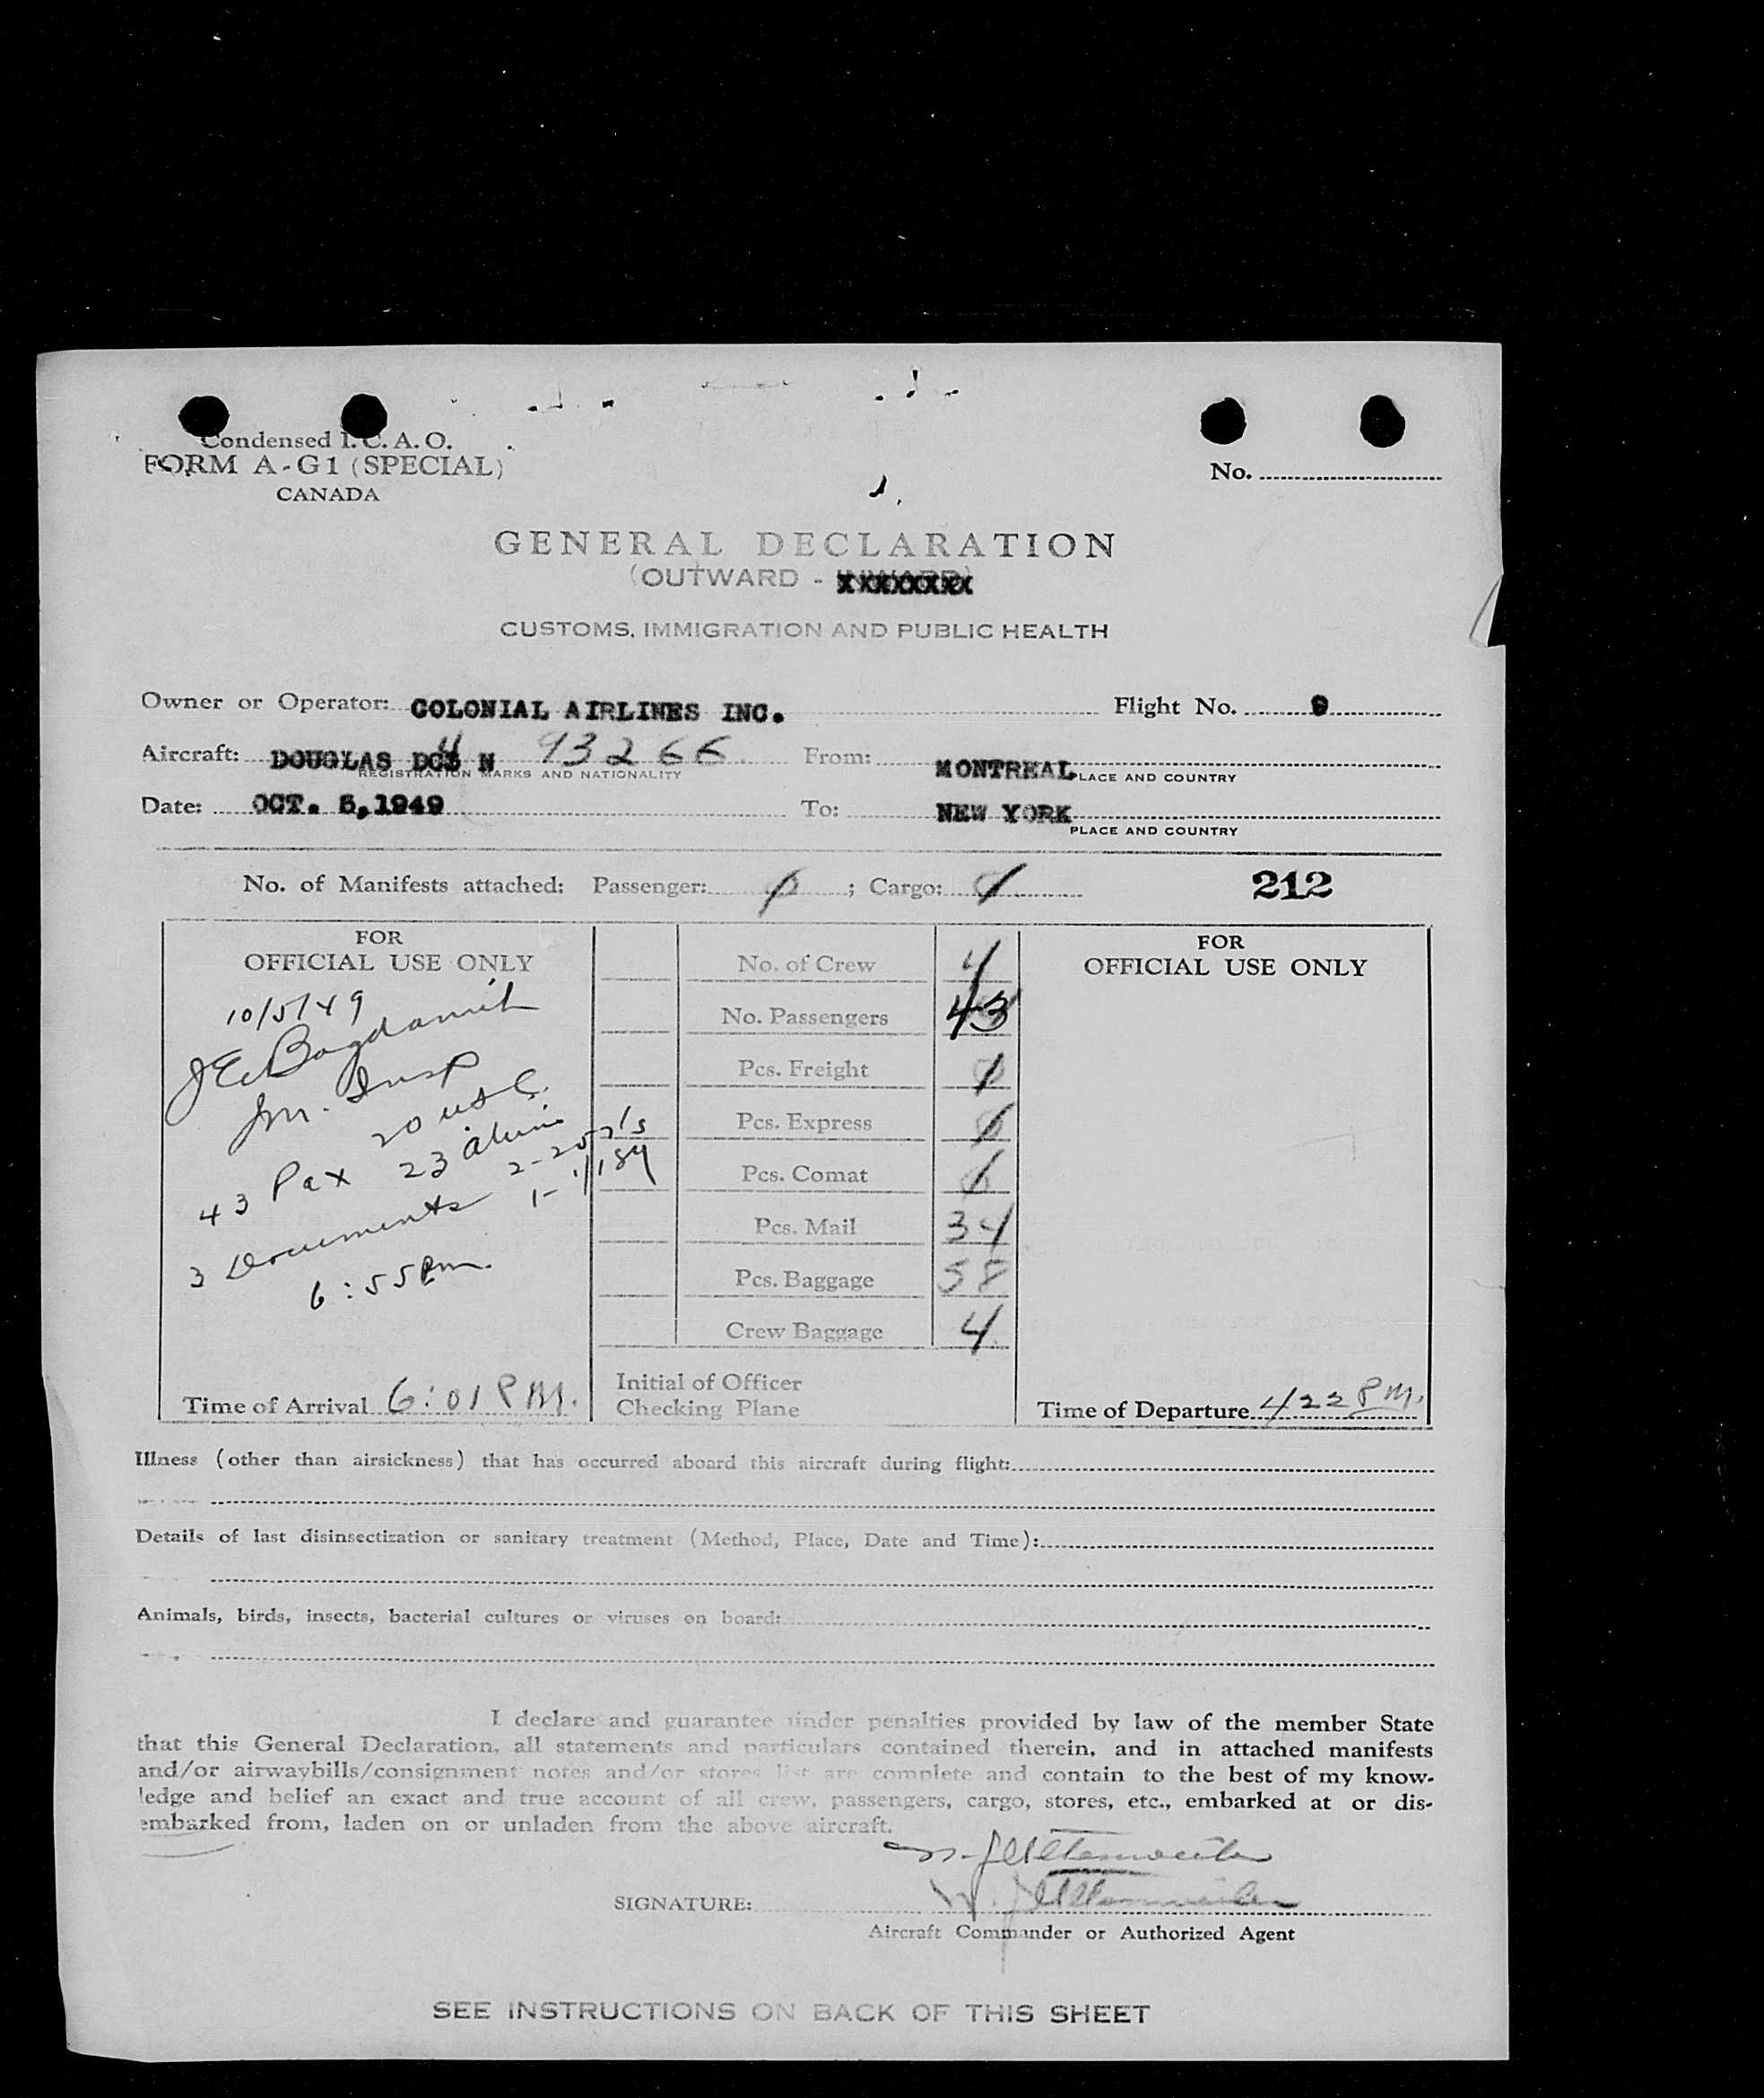 Condensed I.C.A.O.
FORM A-G1 (SPECIAL)
CANADA
No.
GENERAL DECLARATION
(OUTWARD - XXXXXXXX
CUSTOMS, IMMIGRATION AND PUBLIC HEALTH
Owner or Operator: COLONIAL AIRLINES INC. Flight No. 9
Aircraft: DOUGLAS DC4 N 93266 From: MONTREAL
REGISTRATION MARKS AND NATIONALITY PLACE AND COUNTRY
Date: OCT. 5,1949 To: NEW YORK
PLACE AND COUNTRY
No. of Manifests attached: Passenger: ; Cargo: 212
FOR
OFFICIAL USE ONLY
10/5/49
J E Bogdanich
Im. Insp
20 USC.
43 Pax 23 aliens
3 Documents
6:55 Pm.
Time of Arrival 6:01 P M.
No. of Crew 4
No. Passengers 43
Pcs. Freight
Pcs. Express
Pcs. Comat
Pcs. Mail 34
Pcs. Baggage 58
Crew Baggage 4
Initial of Officer
Checking Plane
FOR
OFFICIAL USE ONLY
Time of Departure 422 P.M.
Illness (other than airsickness) that has occurred aboard this aircraft during flight:
Details of last disinsectization or sanitary treatment (Method, Place, Date and Time):
Animals, birds, insects, bacterial cultures or viruses on board:
I declare and guarantee under penalties provided by law of the member State
that this General Declaration, all statements and particulars contained therein, and in attached manifests
and/or airwaybills/consignment notes and/or stores list are complete and contain to the best of my know-
ledge and belief an exact and true account of all crew, passengers, cargo, stores, etc., embarked at or dis-
embarked from, laden on or unladen from the above aircraft.
SIGNATURE:
Aircraft Commander or Authorized Agent
SEE INSTRUCTIONS ON BACK OF THIS SHEET